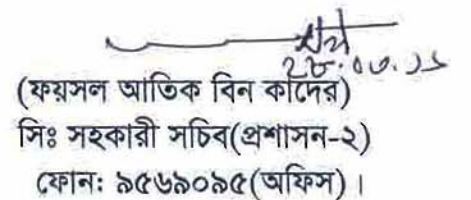 ২৮.০৩.১১
(ফয়সল আতিক বিন কাদের)
সিঃ সহকারী সচিব(প্রশাসন-২)
ফোন: ৯৫৬৯০৯৫(অফিস)।